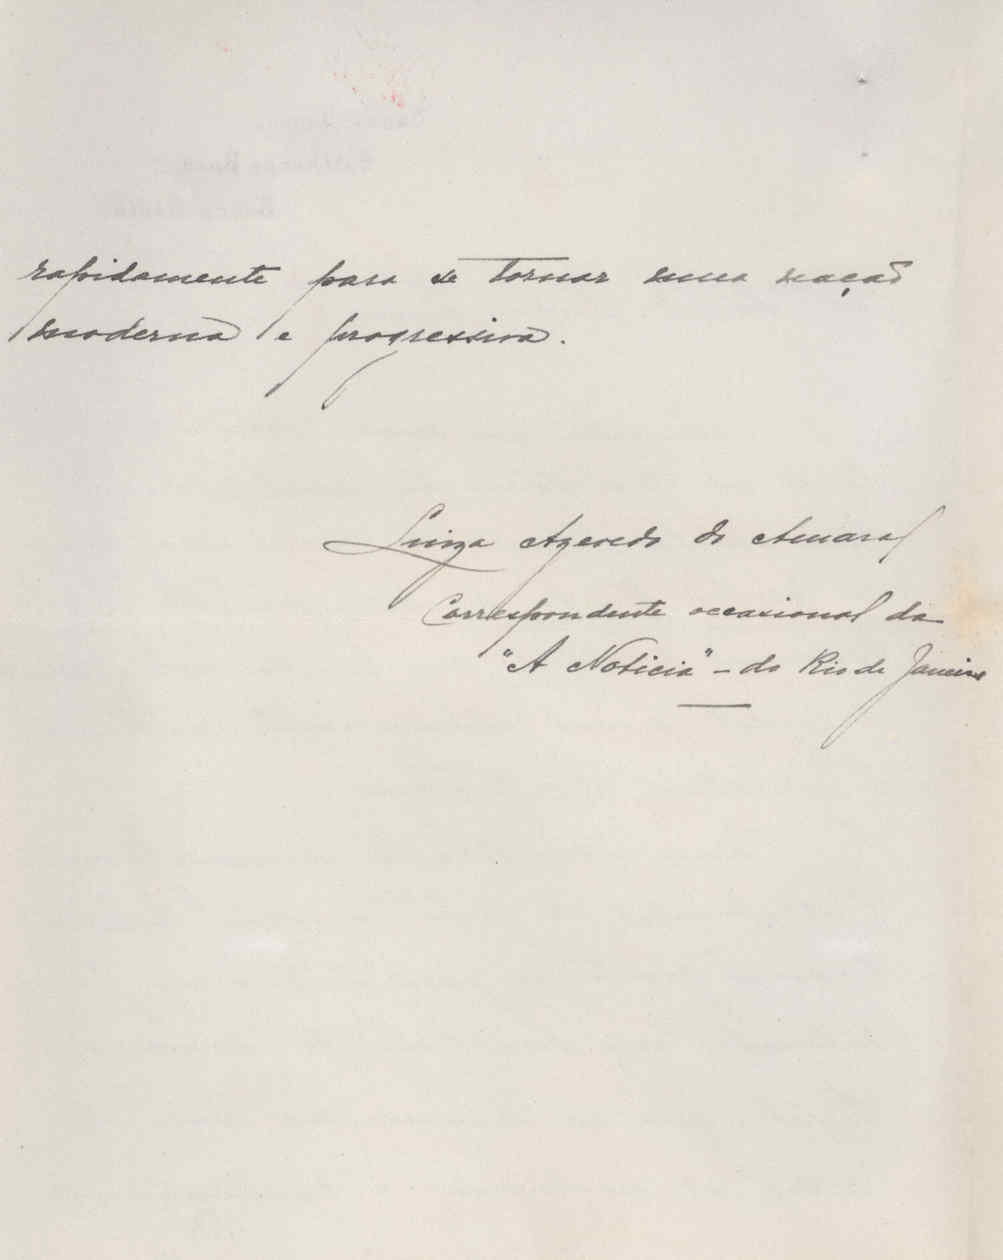 rapidamente para se tornar uma nação
moderna e progressiva.
Luiza Azevedo do Amaral
Correspondente occasional da
"A Noticia" – do Rio de Janeiro